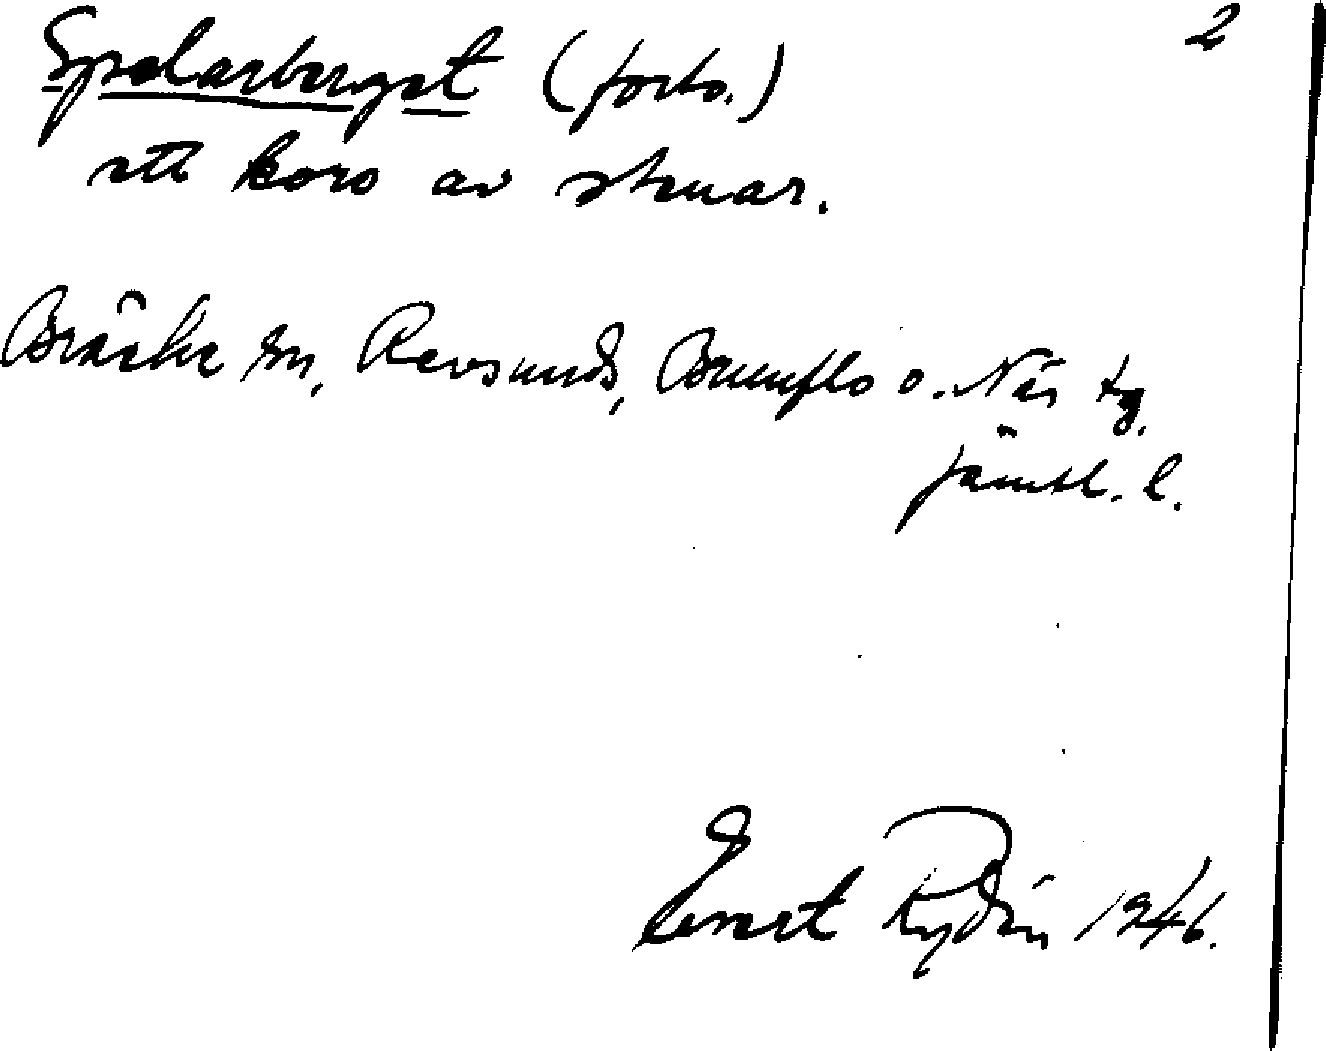 2
Spelarberget (forts.)
ett kors av stenar.
Bräcke sn, Revsunds, Brunflo o. Näs tg.
Jämtl. l.
Ernst Rydén 1946.